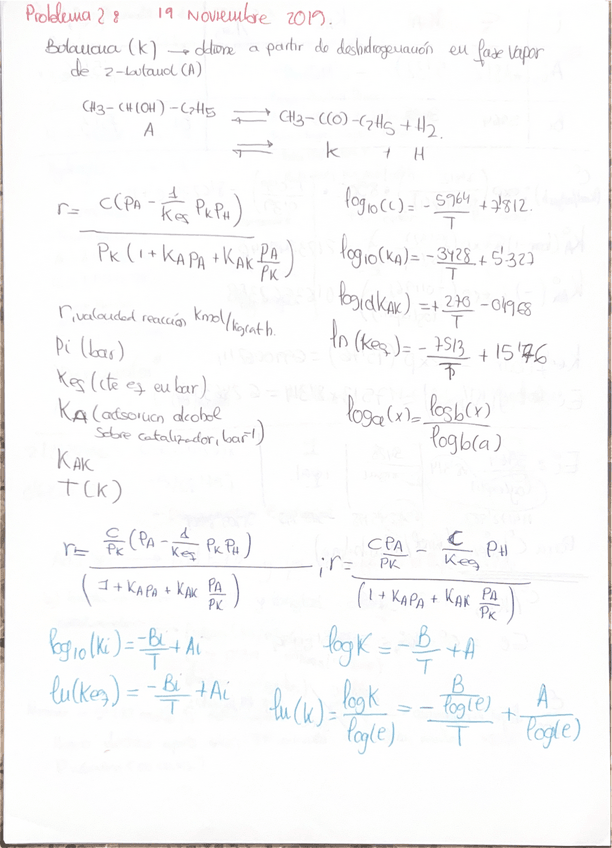 Problema 28 19 Noviembre 2019.
Butanona (K) → obtiene a partir de deshidrogenación en fase vapor
de 2-butanol (A)
CH3-CH(OH)-C2H5 ⇌ CH3-C(O)-C2H5 + H2.
A ⇌ K + H
r = C(PA - 1/Keq PK PH) / PK (1 + KA PA + KAK PA/PK)
log10(C) = -5964/T + 7'812.
log10(KA) = -3428/T + 5.323
log10(KAK) = +270/T - 0'1968
r, velocidad reacción Kmol/kgcat h.
Pi (bar)
ln(Keq) = -7513/T + 15'76
Keq (cte eq en bar)
KA (adsorción alcohol
sobre catalizador, bar⁻¹)
loga(x) = logb(x)/logb(a)
KAK
T (K)
r = C/PK (PA - 1/Keq PK PH) / (1 + KA PA + KAK PA/PK) ; r = (C PA/PK - C/Keq PH) / (1 + KA PA + KAK PA/PK)
log10(Ki) = -Bi/T + Ai
logK = -B/T + A
ln(Keq) = -Bi/T + Ai
ln(K) = logK/log(e) = -(B/log(e))/T + A/log(e)